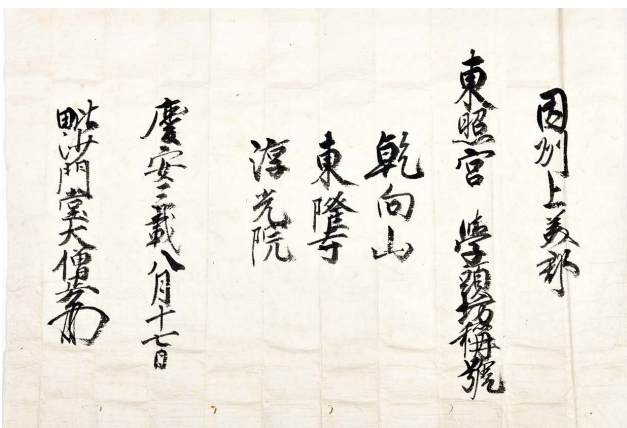 因州上美郡
東照宮　學頭坊稱號
乾向山
東隆寺
淳光院
慶安三載八月十七日
毗沙門堂大僧正